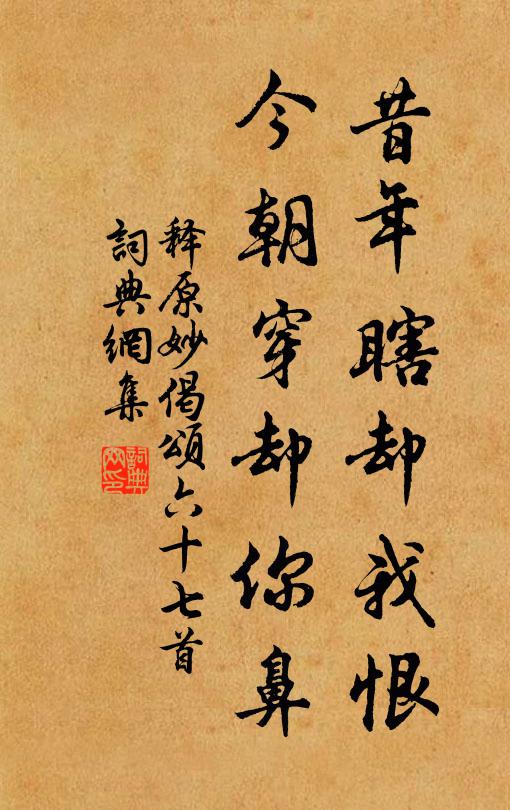 昔年瞎却我恨
今朝穿却你鼻
释原妙偈頌六十七首
詞典網集
詞典網印